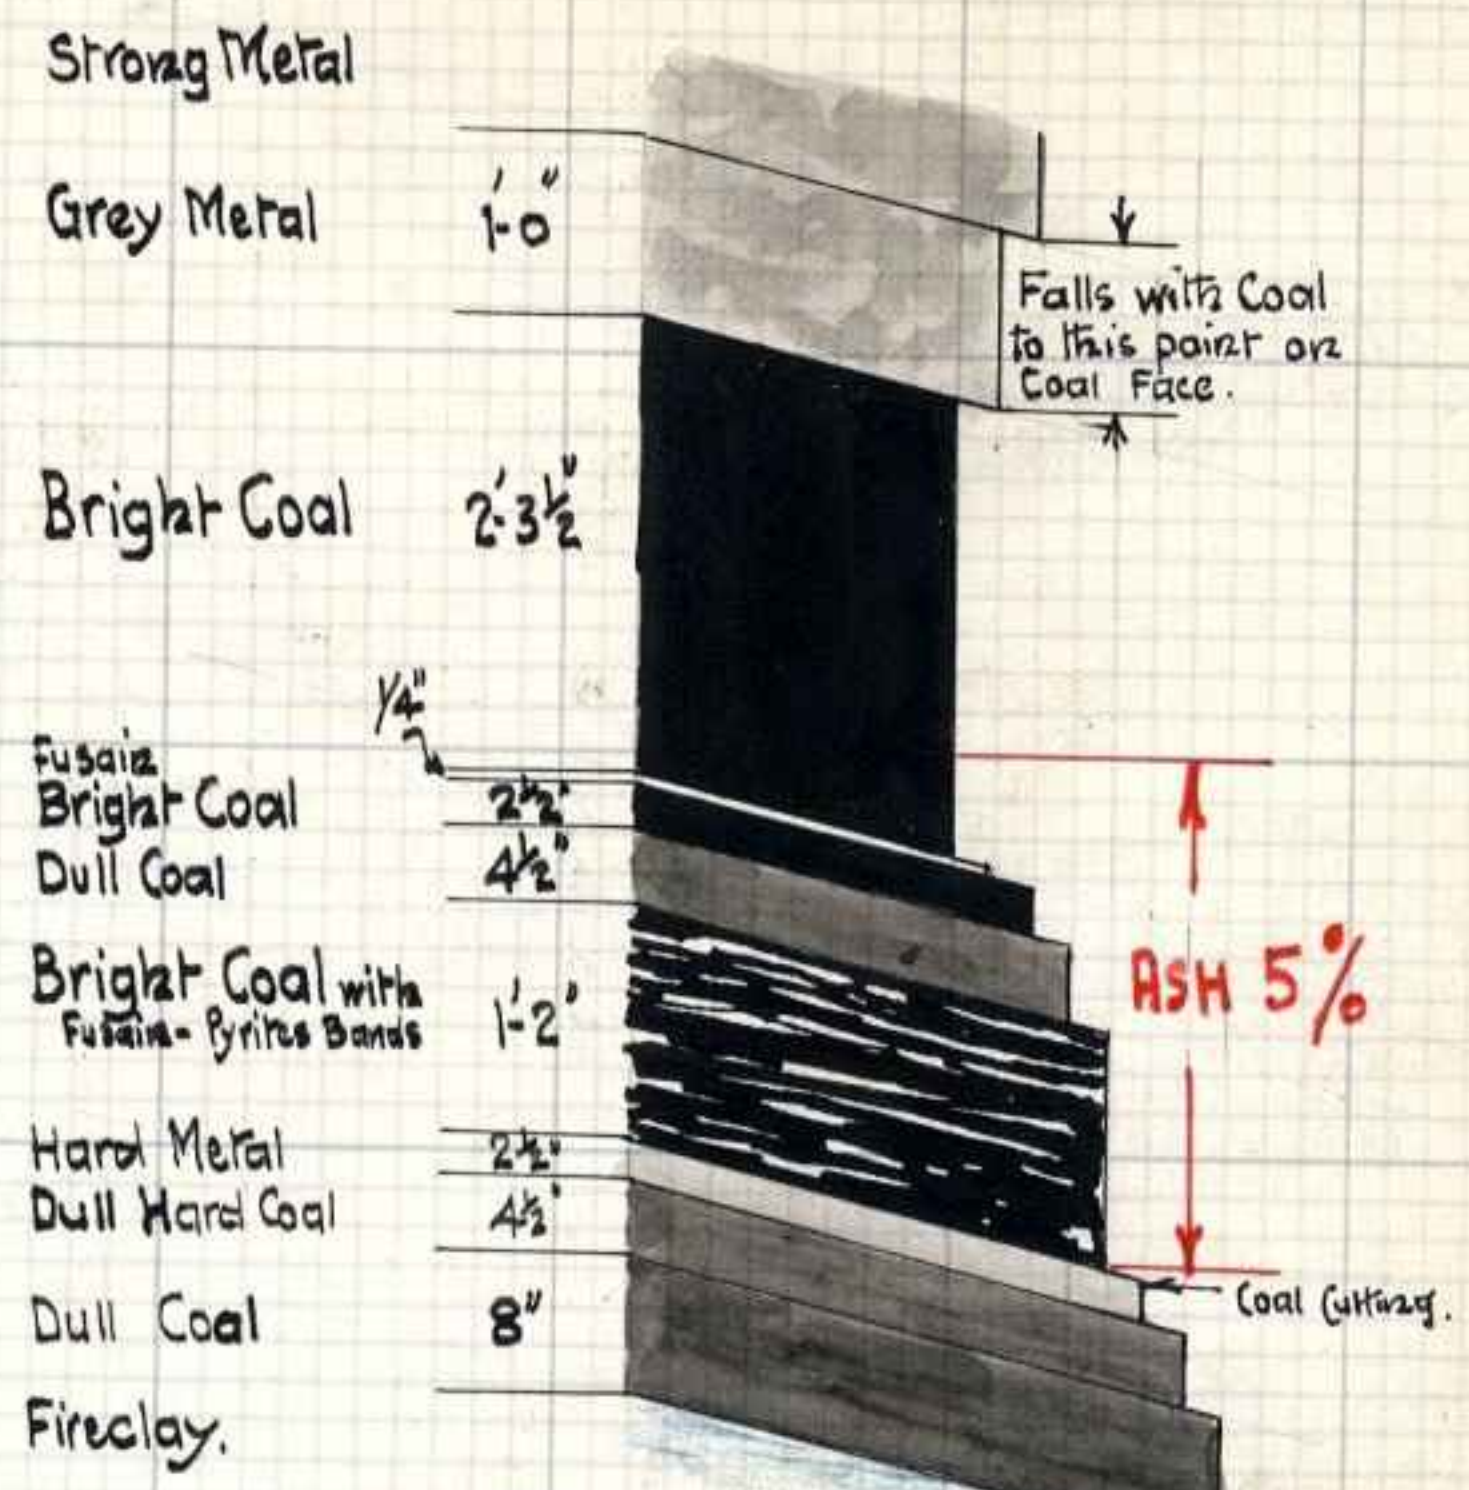 Strong Metal
Grey Metal 1'-0"
Falls with Coal
to this point on
Coal Face.
Bright Coal 2'-3½"
1/4"
Fusain
Bright Coal 2½"
Dull Coal 4½"
Bright Coal with
Fusain - Pyrites Bands 1'-2"
ASH 5%
Hard Metal 2½"
Dull Hard Coal 4½"
Coal Cutting.
Dull Coal 8"
Fireclay.